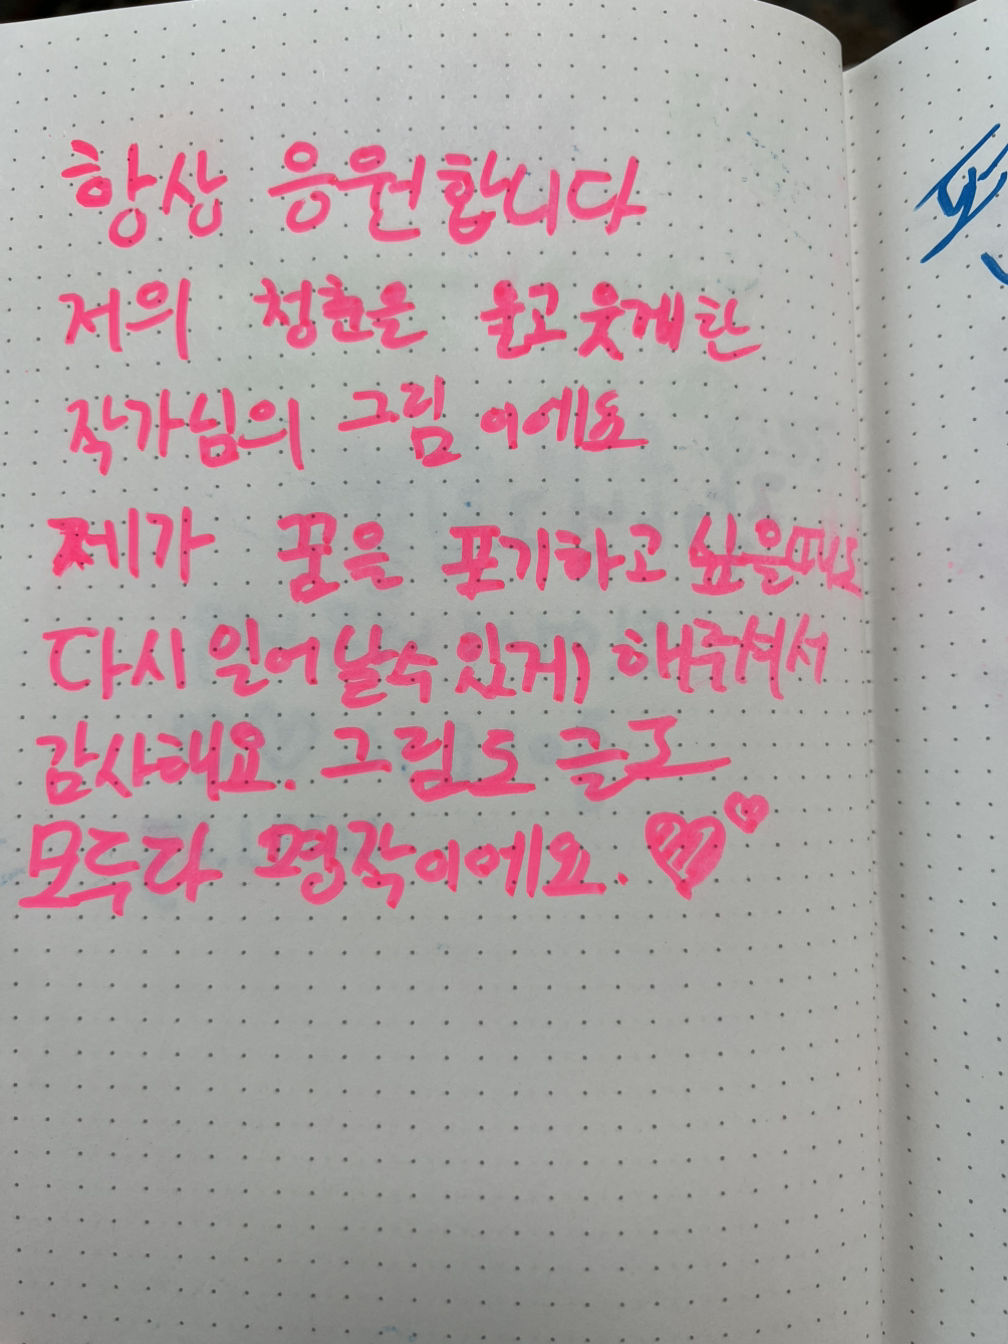 항상 응원합니다
저의 청춘을 울고 웃게 한
작가님의 그림 이에요
제가 꿈을 포기하고 싶을때도
다시 일어날수 있게 해주셔서
감사해요. 그림도 글도
모두다 명작이에요. ♥♥